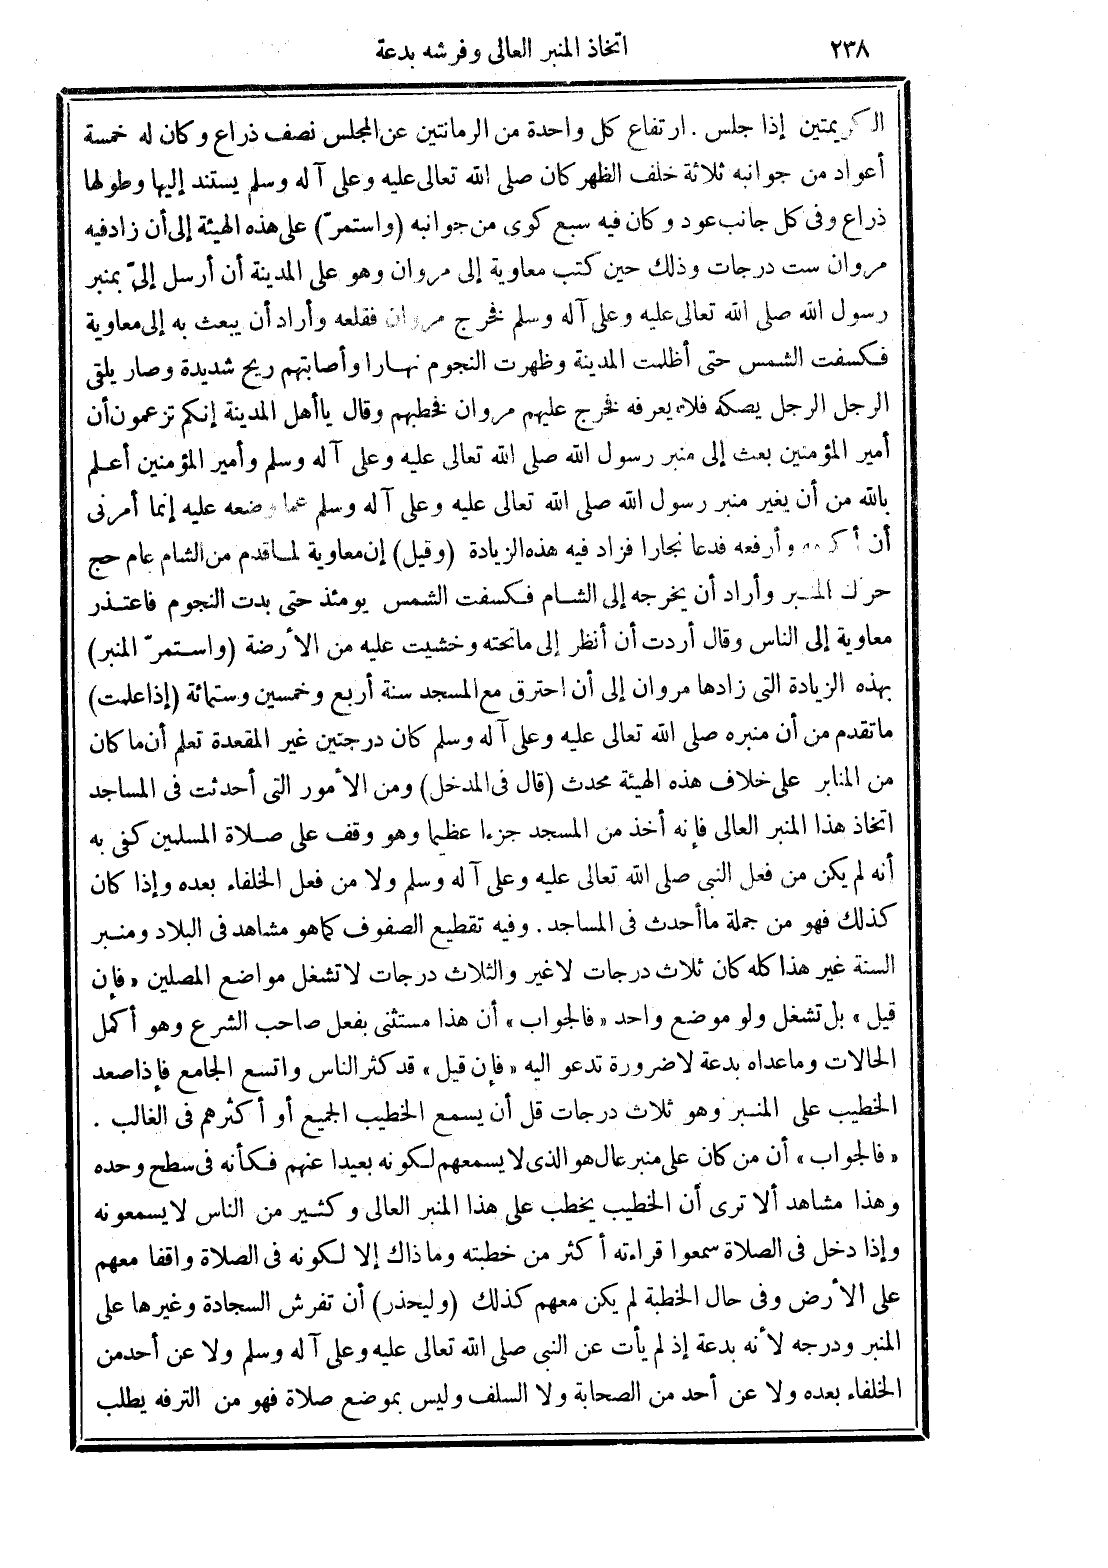 ٢٣٨ اتخاذ المنبر العالى وفرشه بدعة
الكريمتين إذا جلس . ارتفاع كل واحدة من الرمانتين عن المجلس نصف ذراع وكان له خمسة
أعواد من جوانبه ثلاثة خلف الظهر كان صلى الله تعالى عليه وعلى آله وسلم يستند إليها وطولها
ذراع وفى كل جانب عود وكان فيه سبع كوى من جوانبه (واستمرّ) على هذه الهيئة إلى أن زاد فيه
مروان ست درجات وذلك حين كتب معاوية إلى مروان وهو على المدينة أن أرسل إلىّ بمنبر
رسول الله صلى الله تعالى عليه وعلى آله وسلم فخرج مروان فقلعه وأراد أن يبعث به إلى معاوية
فكسفت الشمس حتى أظلمت المدينة وظهرت النجوم نهارا وأصابتهم ريح شديدة وصار يلقى
الرجل الرجل يصكه فلا يعرفه فخرج عليهم مروان فخطبهم وقال ياأهل المدينة إنكم تزعمون أن
أمير المؤمنين بعث إلى منبر رسول الله صلى الله تعالى عليه وعلى آله وسلم وأمير المؤمنين أعلم
بالله من أن يغير منبر رسول الله صلى الله تعالى عليه وعلى آله وسلم عما وضعه عليه إنما أمرنى
أن أكرمه وأرفعه فدعا نجارا فزاد فيه هذه الزيادة (وقيل) إن معاوية لما قدم من الشام عام حج
حرك المنبر وأراد أن يخرجه إلى الشام فكسفت الشمس يومئذ حتى بدت النجوم فاعتذر
معاوية إلى الناس وقال أردت أن أنظر إلى ماتحته وخشيت عليه من الأرضة (واستمرّ المنبر)
بهذه الزيادة التى زادها مروان إلى أن احترق مع المسجد سنة أربع وخمسين وستمائة (إذا علمت)
ماتقدم من أن منبره صلى الله تعالى عليه وعلى آله وسلم كان درجتين غير المقعدة تعلم أن ما كان
من المنابر على خلاف هذه الهيئة محدث (قال فى المدخل) ومن الأمور التى أحدثت فى المساجد
اتخاذ هذا المنبر العالى فإنه أخذ من المسجد جزءا عظيما وهو وقف على صلاة المسلمين كفى به
أنه لم يكن من فعل النبى صلى الله تعالى عليه وعلى آله وسلم ولا من فعل الخلفاء بعده وإذا كان
كذلك فهو من جملة ماأحدث فى المساجد . وفيه تقطيع الصفوف كما هو مشاهد فى البلاد ومنبر
السنة غير هذا كله كان ثلاث درجات لاغير والثلاث درجات لاتشغل مواضع المصلين «فإن
قيل» بل تشغل ولو موضع واحد «فالجواب» أن هذا مستثنى بفعل صاحب الشرع وهو أكمل
الحالات وماعداه بدعة لاضرورة تدعو اليه «فإن قيل» قد كثر الناس واتسع الجامع فإذا صعد
الخطيب على المنبر وهو ثلاث درجات قل أن يسمع الخطيب الجميع أو أكثرهم فى الغالب .
«فالجواب» أن من كان على منبر عال هو الذى لايسمعهم لكونه بعيدا عنهم فكأنه فى سطح وحده
وهذا مشاهد ألا ترى أن الخطيب يخطب على هذا المنبر العالى وكثير من الناس لايسمعونه
وإذا دخل فى الصلاة سمعوا قراءته أكثر من خطبته وماذاك إلا لكونه فى الصلاة واقفا معهم
على الأرض وفى حال الخطبة لم يكن معهم كذلك (وليحذر) أن تفرش السجادة وغيرها على
المنبر ودرجه لأنه بدعة إذ لم يأت عن النبى صلى الله تعالى عليه وعلى آله وسلم ولا عن أحد من
الخلفاء بعده ولا عن أحد من الصحابة ولا السلف وليس بموضع صلاة فهو من الترفه يطلب